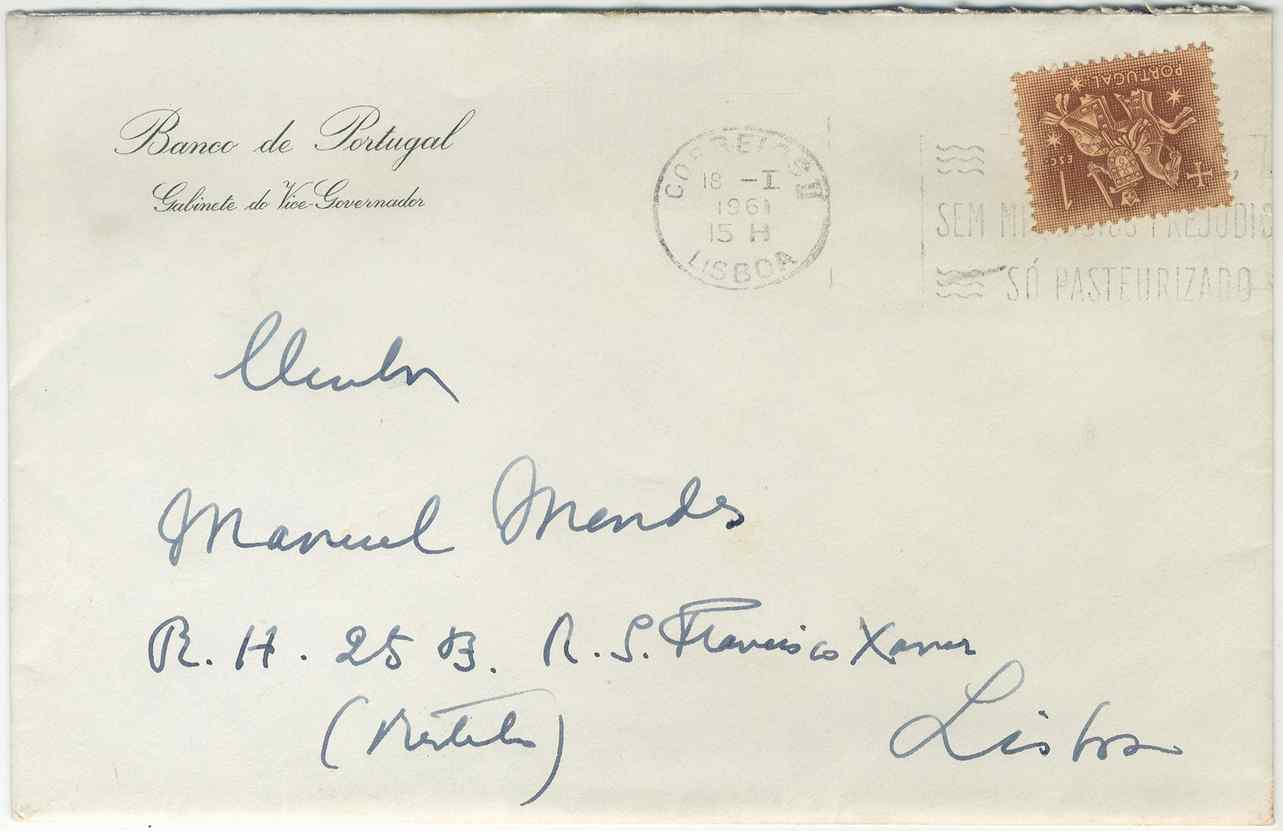 Banco de Portugal
Gabinete do Vice-Governador
CORREIOS
18 -I
1961
15 H
LISBOA
SEM PREJUDIC
SÓ PASTEURIZADO
PORTUGAL
1 ESC.
Manuel Mendes
R. H. 25 B. R. S. Francisco Xavier
(Restelo)
Lisboa